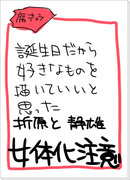 腐きゅう
誕生日だから
好きなものを
描いていいと
思った
折原と静雄
女体化注意